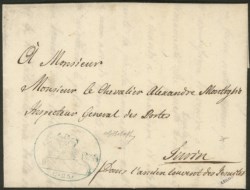 A Monsieur
Monsieur le Chevalier Alexandre
Inspecteur General des Postes
Turin
Dans l'ancien couvent des